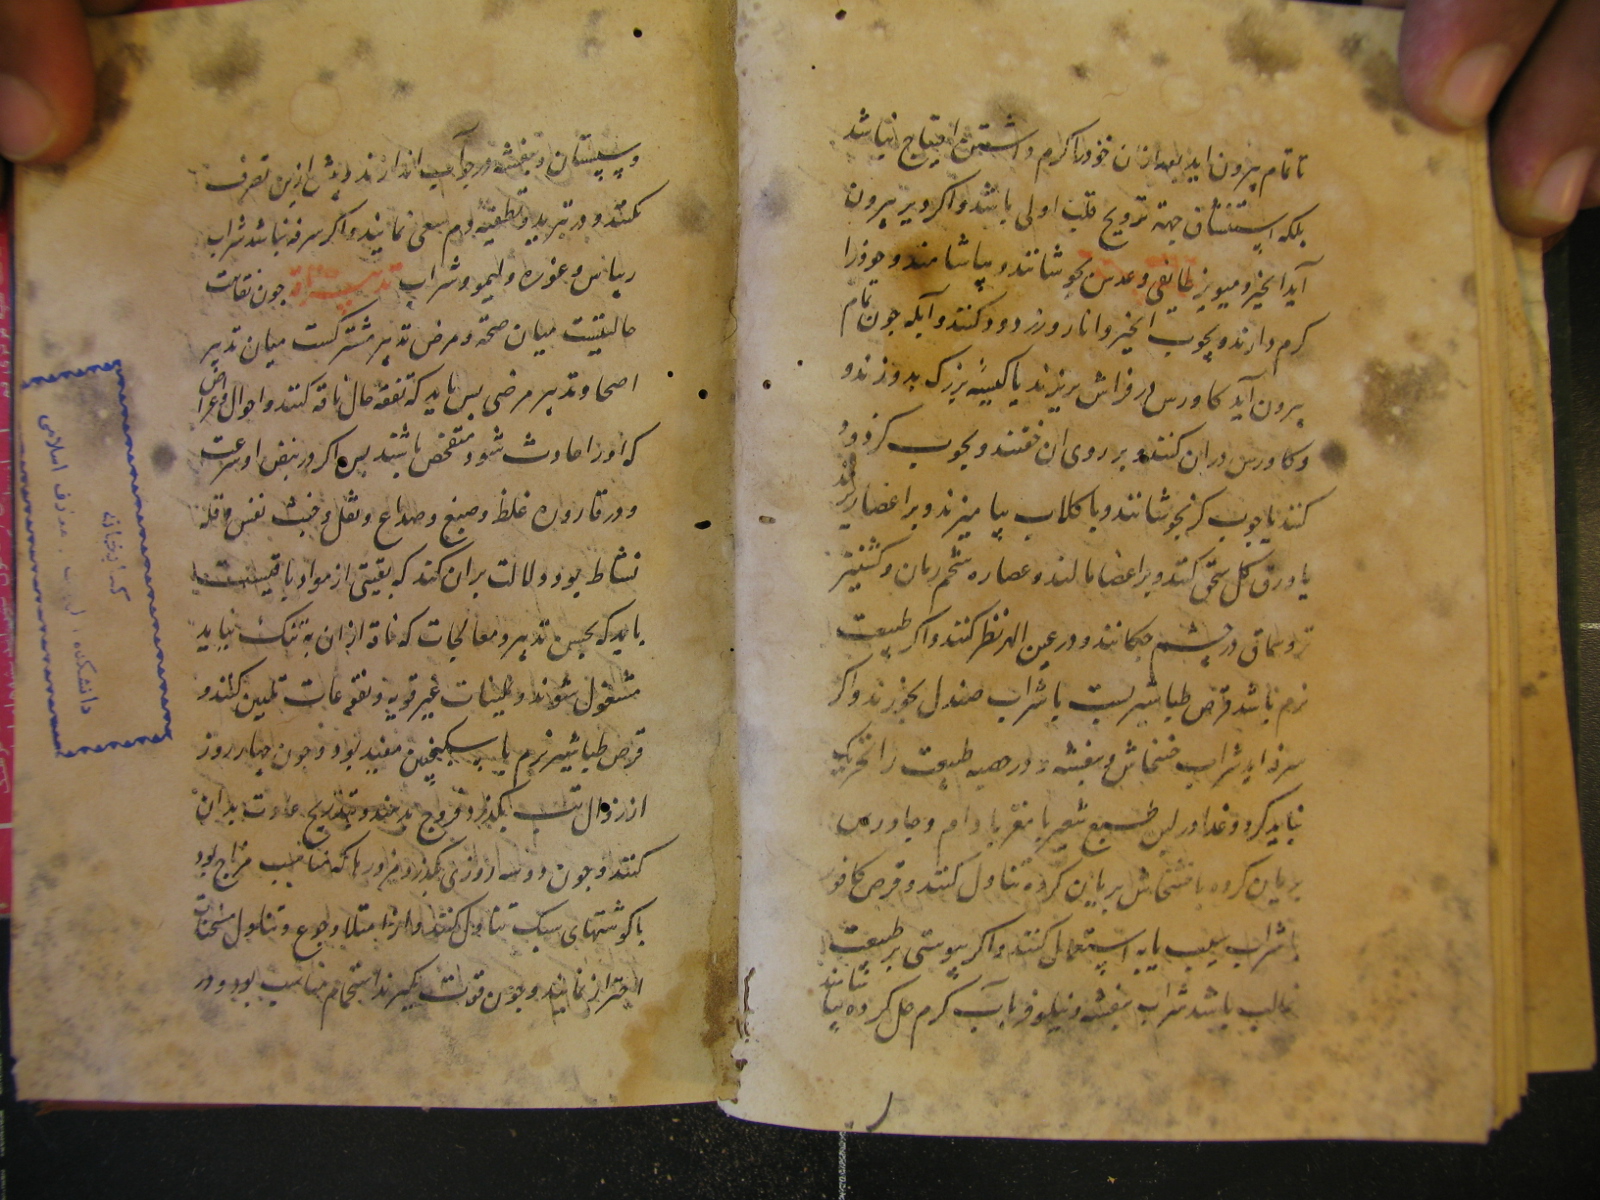 تا تمام بیرون اید بعد ازان خودرا کرم داشتن احتیاج نباشد
بلکه استنشاق جهة ترویح قلب اولی باشد و اکر دیر بیرون
آید انجیر و میویز طائفی و عدس بجوشانند و بیاشامند و خودرا
کرم دارند و بچوب انجیر و انار و رز دود کنند و آبله چون تمام
بیرون آید کاورس در فراش بریزند یا کیسهٔ بزرک بدوزند و
و کاورس دران کنند و بر روی ان خفتند و بچوب کز دود
کنند یا چوب کز بجوشانند و با کلاب بیامیزند و بر اعضا ریزند
یا ورق کل سحق کنند و بر اعضا مالند و عصاره شحم رمان و کشنیز
تر و سماق در چشم چکانند و در عین الهر نظر کنند و اکر طبیعت
نرم باشد قرص طباشیر بست با شراب صندل بخورند و اکر
سرفه اید شراب خشخاش و بنفشه و در حصبه طبیعت را تحریک
نباید کرد و غدا در لین طبع شعیر با مغز بادام و جاورس
بریان کرده با خشخاش بریان کرده تناول کنند و قرص کافور
با شراب سیب یا به استعمال کنند و اکر یبوستی بر طبیعت
غالب باشد شراب بنفشه و نیلوفر بآب کرم حل کرده بیاشامند
و سپستان و بنفشه در جو آب اندازند و بیش ازین تصرف
نکنند و در تبرید و تطفیه دم سعی نمایند و اکر سرفه نباشد شراب
ریباس و غوره و لیمو و شراب تدبیر ناقه چون نقاهت
حالتیست میان صحة و مرض تدبیر مشترکست میان تدبیر
اصحا و تدبیر مرضی بس باید که تفقد حال ناقه کنند و احوال و اعراض
که اورا حادث شود متفحص باشند بس اکر در نبض او سرعت
و در قاروره غلظ و صبغ و صداع و ثقل و خبث نفس و قلة
نشاط بود دلالت بران کند که بقیتی از مواد باقیست
باید که بحسن تدبیر و معالجات که ناقه ازان به تنک نیاید
مشغول شوند و ملینات غیر قویه و نقوعات تلیین کنند و
قرص طباشیر نرم با سکنجبین مفید بود و چون چهار روز
از زوال تب بکذرد فروج بدهند و بتدریج عادت بدان
کنند و چون دو سه روزی بکذرد مزورها که مناسب مزاج بود
با کوشتهای سبک تناول کنند و از امتلا و جوع و تناول مسخنات
احتراز نمایند و چون قوت کیرند استحمام مناسب بود و در
کتابخانه
دانشکده الهیات و معارف اسلامی